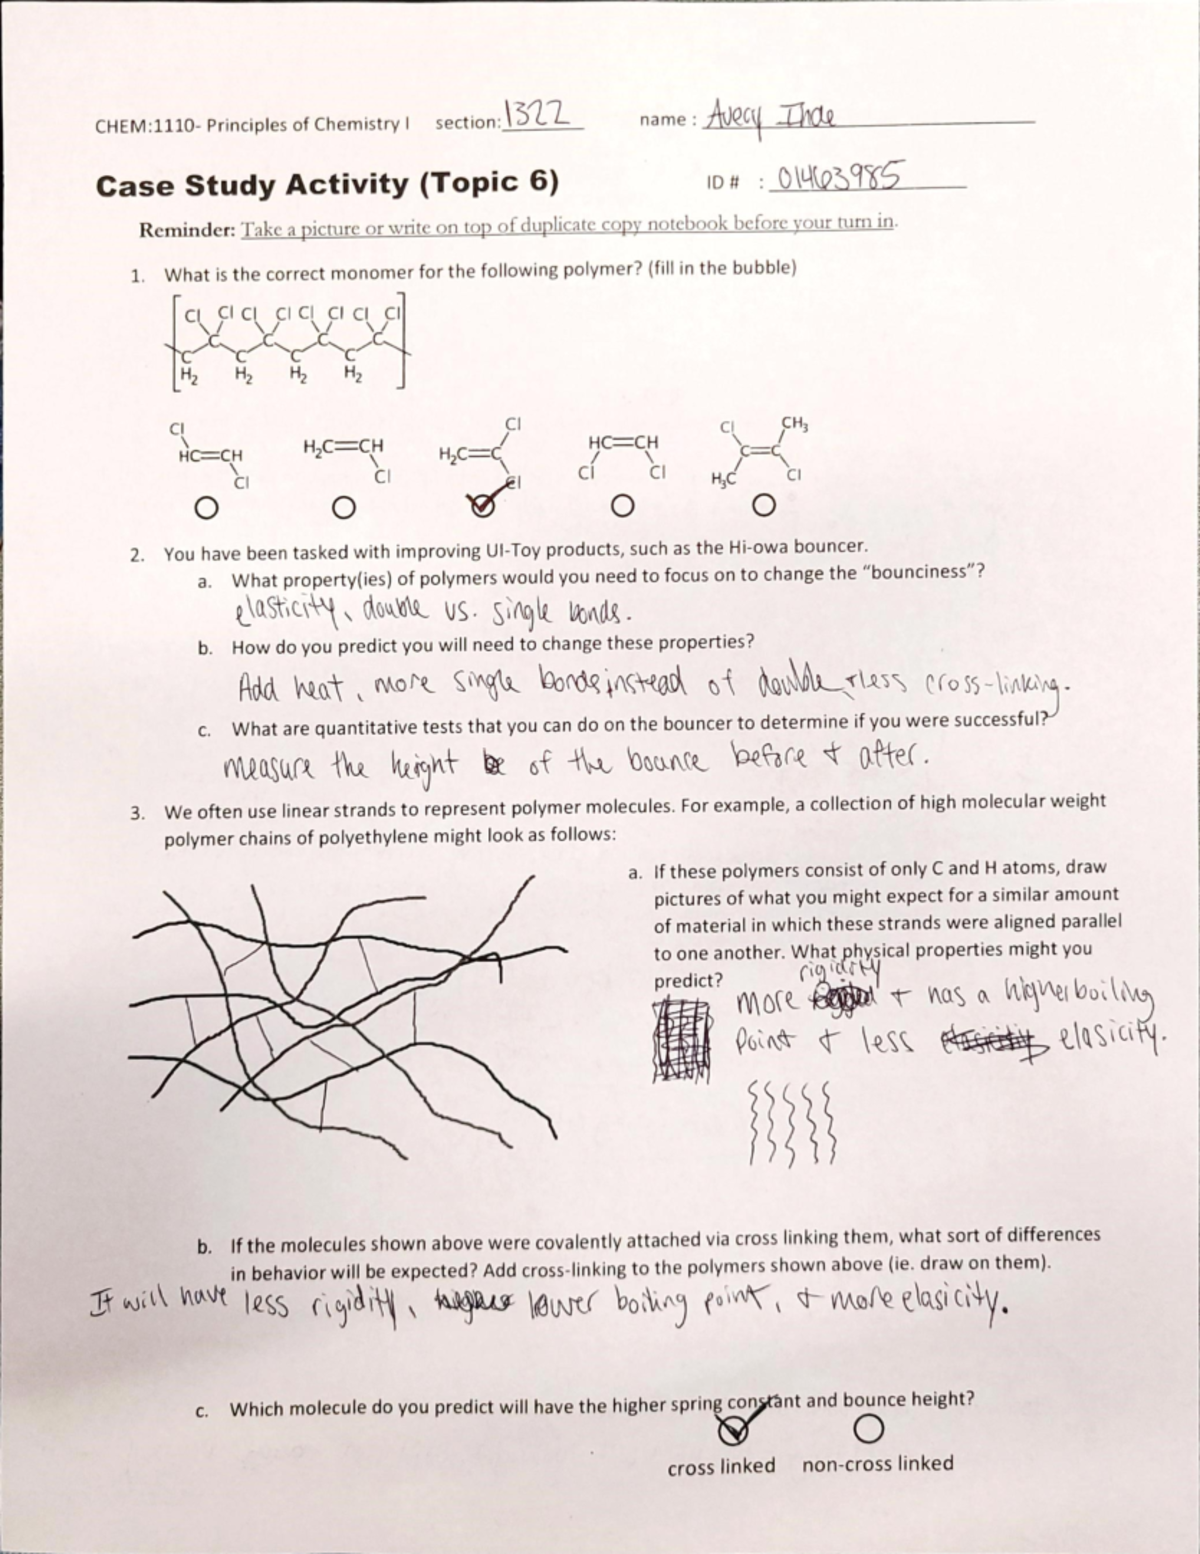 CHEM:1110- Principles of Chemistry I section: 1322 name : Avery Ihde
Case Study Activity (Topic 6) ID # : 01463985
Reminder: Take a picture or write on top of duplicate copy notebook before your turn in.
1. What is the correct monomer for the following polymer? (fill in the bubble)
Cl Cl Cl Cl Cl Cl Cl Cl
C C C C
C C C C
H2 H2 H2 H2
Cl Cl Cl CH3
HC=CH H2C=CH H2C=C HC=CH C=C
Cl Cl Cl Cl Cl H3C Cl
2. You have been tasked with improving UI-Toy products, such as the Hi-owa bouncer.
a. What property(ies) of polymers would you need to focus on to change the “bounciness”?
elasticity, double vs. single bonds.
b. How do you predict you will need to change these properties?
Add heat, more single bonds instead of double, + less cross-linking.
c. What are quantitative tests that you can do on the bouncer to determine if you were successful?
measure the height of the bounce before + after.
3. We often use linear strands to represent polymer molecules. For example, a collection of high molecular weight
polymer chains of polyethylene might look as follows:
a. If these polymers consist of only C and H atoms, draw
pictures of what you might expect for a similar amount
of material in which these strands were aligned parallel
to one another. What physical properties might you
predict?
rigidity
more + has a higher boiling
point + less elasicity.
b. If the molecules shown above were covalently attached via cross linking them, what sort of differences
in behavior will be expected? Add cross-linking to the polymers shown above (ie. draw on them).
It will have less rigidity, lower boiling point, + more elasicity.
c. Which molecule do you predict will have the higher spring constant and bounce height?
cross linked non-cross linked